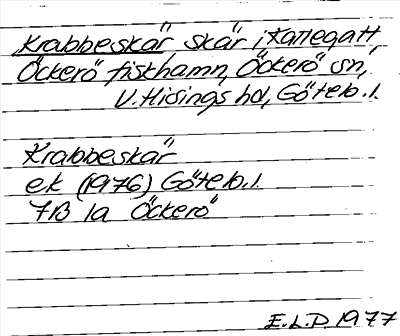 Krabbeskär, skär i Kattegatt,
Öckerö fiskhamn, Öckerö sn,
V. Hisings hd, Göteb. l.
Krabbeskär
ek (1976) Göteb. l.
7B 1a Öckerö
E.L.P. 1977